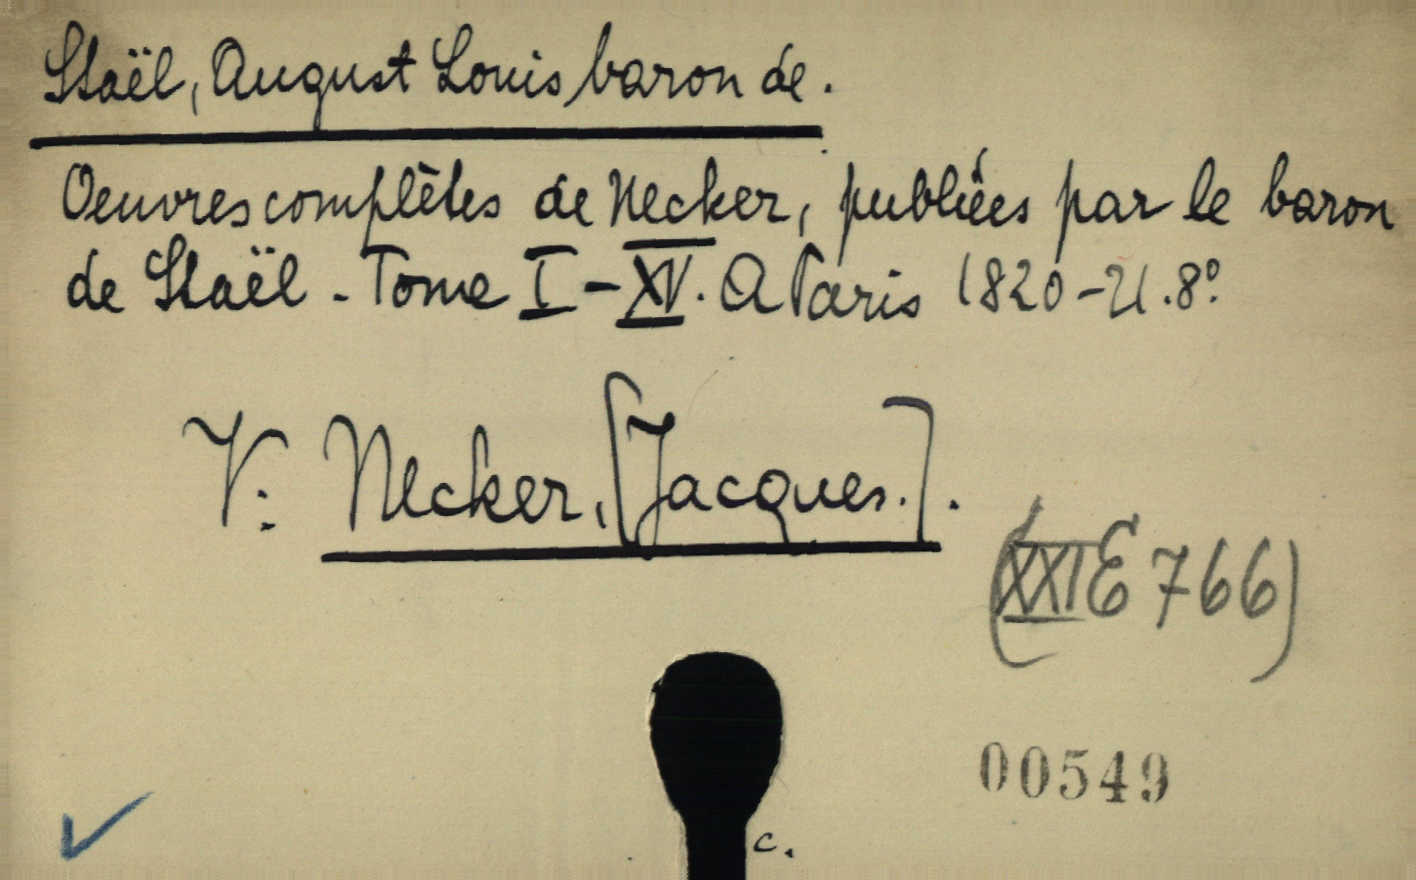 Staël, August Louis baron de.
Oeuvres complètes de Necker, publiées par le baron
de Staël - Tome I-XV. A Paris 1820-21. 8º.
V: Necker, [Jacques.].
(XXI E 766)
00549
c.